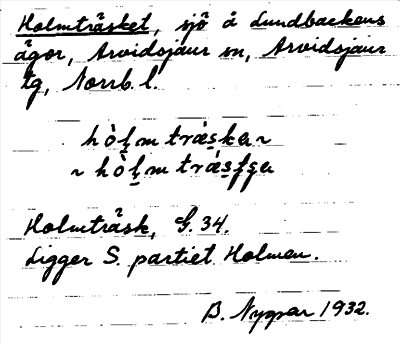 Holmträsket, sjö å Lundbackens
ägor, Arvidsjaur sn, Arvidsjaur
tg, Norrb. l.
hòḻm tràska~
~ hòḻm tràsṯsa
Holmträsk, G. 34.
Ligger S. partiet Holmen.
B. Nyman 1932.